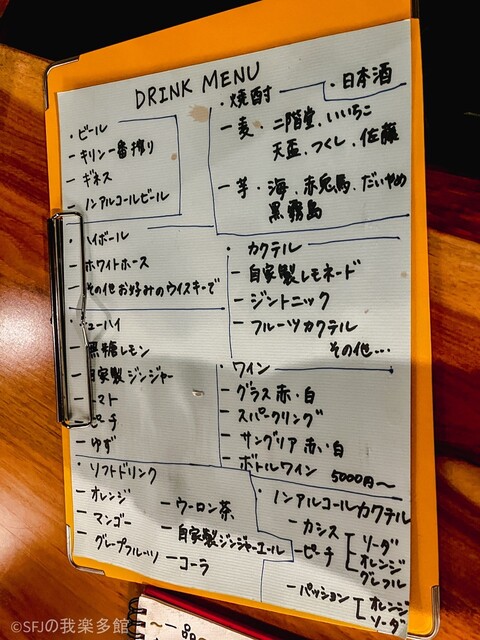 DRINK MENU
・ビール
- キリン一番搾り
- ギネス
- ノンアルコールビール
・焼酎
・日本酒
- 麦・二階堂、いいちこ
天盃、つくし、佐藤
- 芋・海、赤兎馬、だいやめ
黒霧島
ハイボール
- ホワイトホース
- その他お好みのウイスキーで
・カクテル
- 自家製レモネード
- ジントニック
- フルーツカクテル
その他…
ューハイ
黒糖レモン
自家製ジンジャー
マト
ピーチ
- ゆず
・ワイン
- グラス赤・白
- スパークリング
- サングリア赤・白
- ボトルワイン 5000円〜
・ソフトドリンク
- オレンジ
- マンゴー
- グレープフルーツ
- ウーロン茶
- 自家製ジンジャーエール
- コーラ
・ノンアルコールカクテル
- カシス
- ピーチ
ソーダ
オレンジ
グレフル
- パッション
オレンジ
ソーダ
©SFJの我楽多館